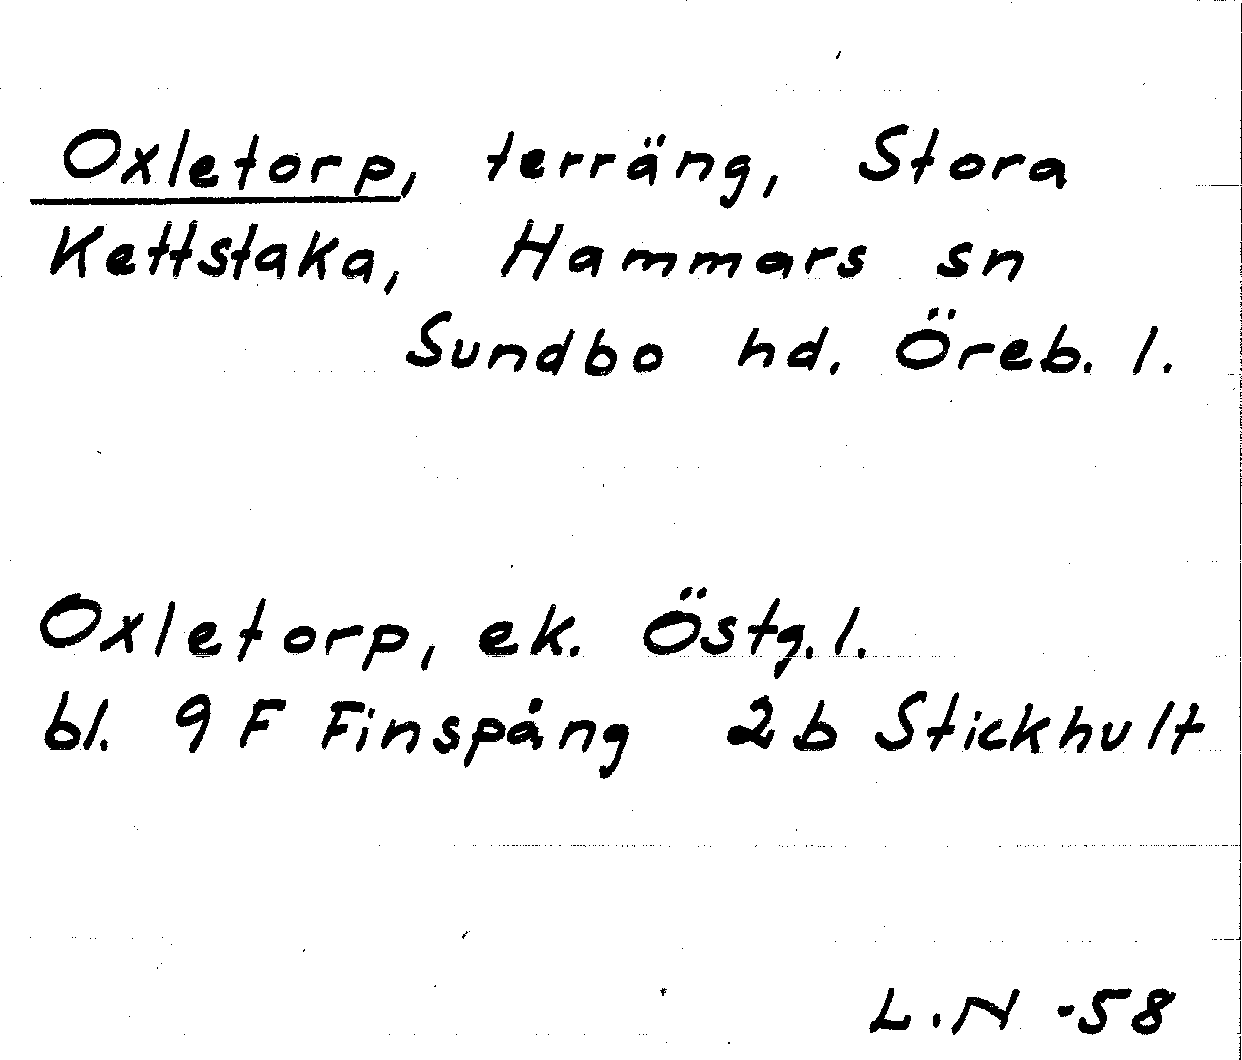 Oxletorp, terräng, Stora
Kettstaka, Hammars sn
Sundbo hd. Öreb. l.
Oxletorp, ek. Östg. l.
bl. 9 F Finspång 2b Stickhult
L.N -58